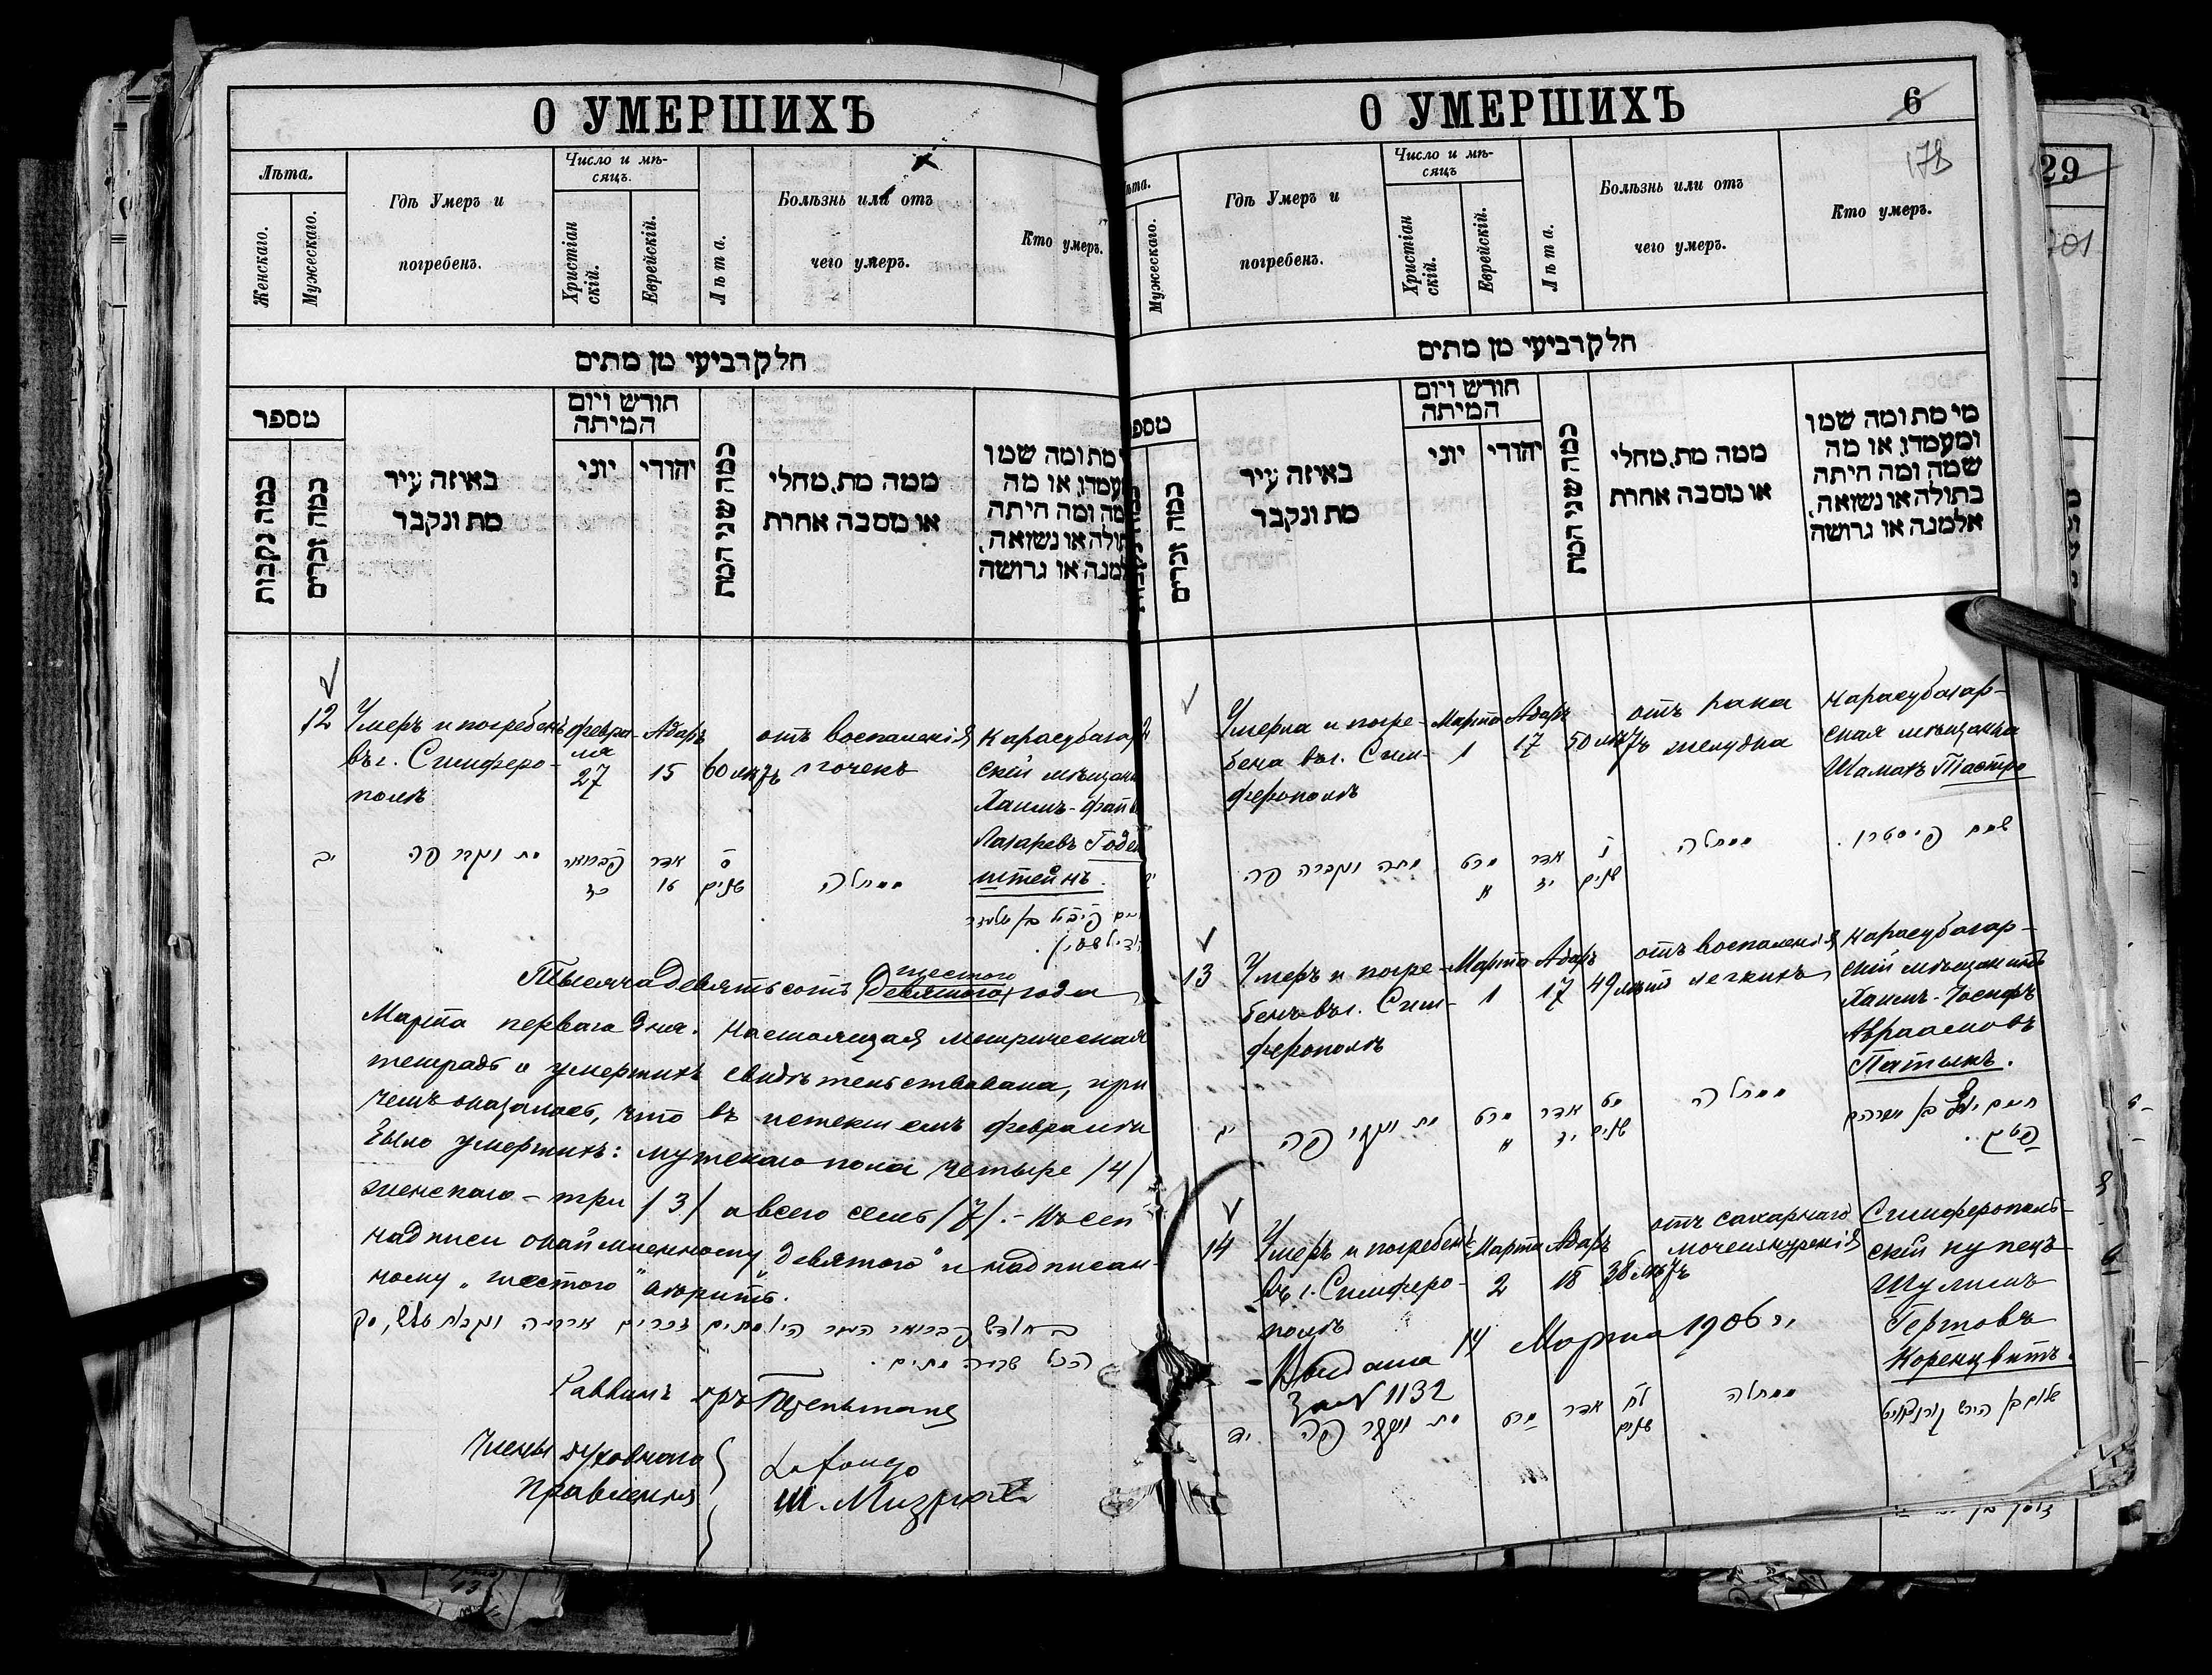 О УМЕРШИХЪ
Лѣта.
Женскаго.
Мужескаго.
Гдѣ Умеръ и
погребенъ.
Число и мѣ-
сяцъ.
Христіан
скій.
Еврейскій.
Лѣта.
Болѣзнь или отъ
чего умеръ.
Кто умеръ.
חלק רביעי מן מתים
מספר
כמה נקבות
כמה זכרים
באיזה עיר
מת ונקבר
חודש ויום
המיתה
יוני
יהודי
כמה שני המת
ממה מת, מחלי
או מסבה אחרת
מת ומה שמו
ומה חיתה
או נשואה,
או גרושה
12
Умеръ и погребенъ
въ г. Симферо-
полѣ
Февра-
ля
27
Адаръ
15
60 лѣтъ
отъ воспаленія
почекъ
Карасубазар
скій мѣщан
Хаимъ-Фай
Лазаревъ Годе
штейнъ.
יב
מת ונקבר פה
פברואר
כז
אדר
טו
ס
שנים
ממחלה
Тысяча девятьсотъ шестого
(девятого) года
Марта перваго дня. Настоящая метрическая
тетрадь о умершихъ свидѣтельствована, при
чемъ оказалось, что въ истекшемъ февралѣ
было умершихъ: мужскаго пола четыре /4/
женскаго – три /3/ а всего семь /7/. – Къ сей
надписи окаймленному „девятого" и надписан-
ному „шестого" вѣрить.
הכל שבעה מתים.
Раввинъ
Члены духовнаго
Правленія
Ш. Мизрахи
О УМЕРШИХЪ
6
178
Мужескаго.
Гдѣ Умеръ и
погребенъ.
Число и мѣ-
сяцъ
Христіан
скій.
Еврейскій.
Лѣта.
Болѣзнь или отъ
чего умеръ.
Кто умеръ.
חלק רביעי מן מתים
כמה זכרים
באיזה עיר
מת ונקבר
חודש ויום
המיתה
יוני
יהודי
כמה שני המת
ממה מת, מחלי
או מסבה אחרת
מי מת ומה שמו
ומעמדו, או מה
שמה ומה חיתה
בתולה או נשואה,
אלמנה או גרושה
Умерла и погре-
бена въ г. Сим-
ферополѣ
Марта
1
Адаръ
17
50 лѣтъ
отъ Рака
желудка
Карасубазар-
ская мѣщанка
Шамахъ Піастро
מתה ונקברה פה
מרט
א
אדר
יז
נ
שנים
ממחלה
13
Умеръ и погре-
бенъ въ г. Сим-
ферополѣ
Марта
1
Адаръ
17
49 лѣтъ
отъ воспаленія
легкихъ
Карасубазар-
скій мѣщанинъ
Хаимъ-Іосифъ
Авраамовъ
Патыкъ.
יג
מת ונקבר פה
מרט
א
אדר
יז
מט
שנים
ממחלה
חיים יוסף בן אברהם
14
Умеръ и погребенъ
въ г. Симферо-
полѣ
Марта
2
Адаръ
18
38 лѣтъ
отъ сахарнаго
мочеизнуренія
Симферополь-
скій купецъ
Шулимъ
Гершовъ
Коренцвитъ.
Выдана 14 Марта 1906 г.
за № 1132
יד
מת ונקבר פה
מרט
אדר
לח
שנים
ממחלה
29